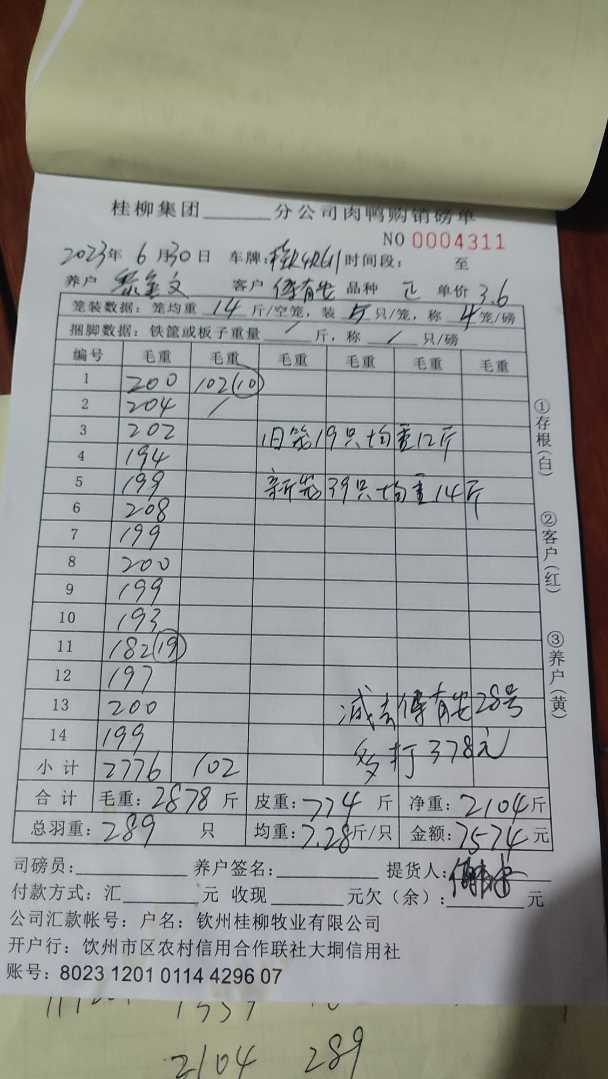 桂柳集团______分公司肉鸭购销磅单
NO 0004311
2023年 6月30日 车牌: 时间段: 至
养户 客户 傅有安 品种 单价 3.6
笼装数据: 笼均重 14 斤/空笼, 装 5 只/笼, 称 4 笼/磅
捆脚数据: 铁筐或板子重量 / 斤, 称 / 只/磅
编号 毛重 毛重 毛重 毛重 毛重 毛重
1 200 102(10)
2 204 /
3 202 旧笼19只均重12斤
4 194
5 199 新笼39只均重14斤
6 208
7 199
8 200
9 199
10 193
11 182(19)
12 197
13 200 减去傅有安28号
14 199 多打378元
小计 2776 102
合计 毛重: 2878 斤 皮重: 774 斤 净重: 2104 斤
总羽重: 289 只 均重: 7.28 斤/只 金额: 7574 元
司磅员: 养户签名: 提货人:
付款方式: 汇 元 收现 元欠(余): 元
公司汇款帐号: 户名: 钦州桂柳牧业有限公司
开户行: 饮州市区农村信用合作联社大垌信用社
账号: 8023 1201 0114 4296 07
①存根(白)
②客户(红)
③养户(黄)
2104 289